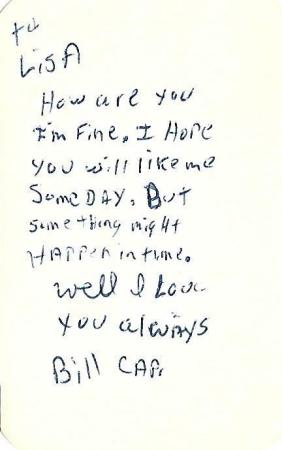 to
LISA
How are you
I'm Fine. I Hope
you will like me
Some DAY. But
something might
HAPPen in time.
well I Love
you always
Bill CAP.